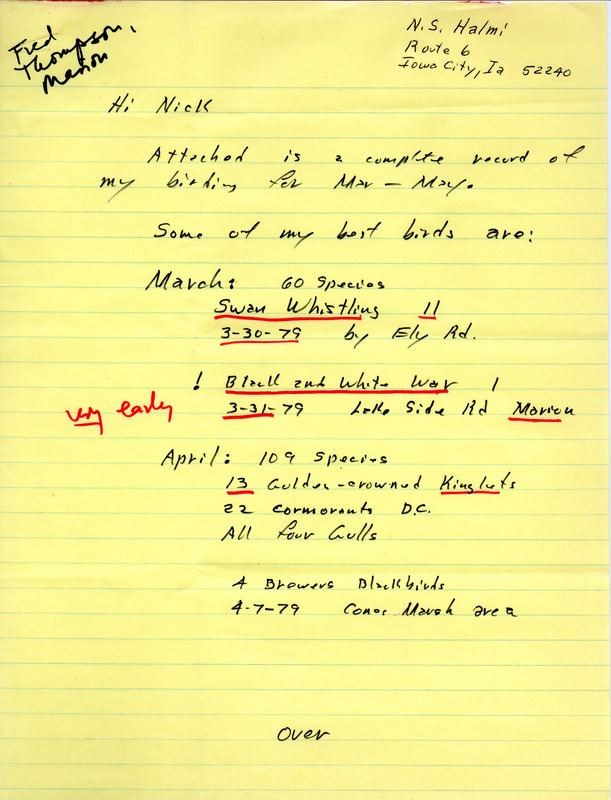 Fred
Thompson,
Marion
N.S. Halmi
Route 6
Iowa City, Ia 52240
Hi Nick
Attached is a complete record of
my birding for Mar – May.
Some of my best birds are:
March: 60 Species
Swan Whistling 11
3-30-79 by Ely Rd.
! Black and White War 1
very early
3-31-79 Lake Side Rd Marion
April: 109 Species
13 Golden-crowned Kinglets
22 Cormorants D.C.
All four Gulls
4 Brewers Blackbirds
4-7-79 Cones Marsh area
Over